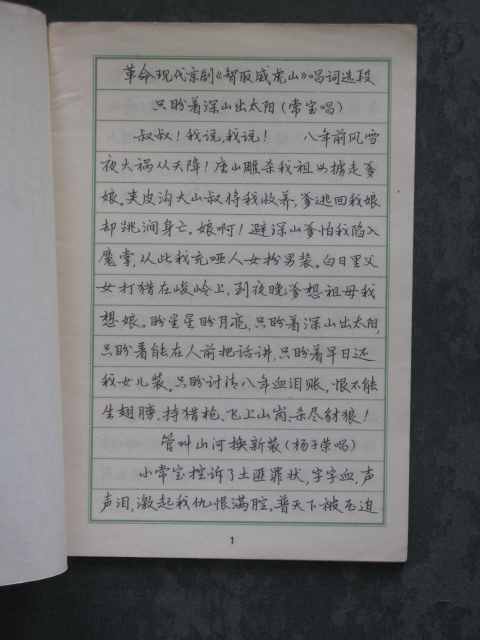 革命现代京剧《智取威虎山》唱词选段
只盼着深山出太阳(常宝唱)
叔叔！我说，我说！ 八年前风雪
夜大祸从天降！座山雕杀我祖母掳走爹
娘。夹皮沟大山叔将我收养，爹逃回我娘
却跳涧身亡。娘啊！避深山爹怕我陷入
魔掌，从此我充哑人女扮男装。白日里父
女打猎在峻岭上，到夜晚爹想祖母我
想娘。盼星星盼月亮，只盼着深山出太阳，
只盼着能在人前把话讲，只盼着早日还
我女儿装。只盼讨清八年血泪账，恨不能
生翅膀、持猎枪、飞上山岗、杀尽豺狼！
管叫山河换新装(杨子荣唱)
小常宝控诉了土匪罪状，字字血，声
声泪，激起我仇恨满腔。普天下被压迫
1